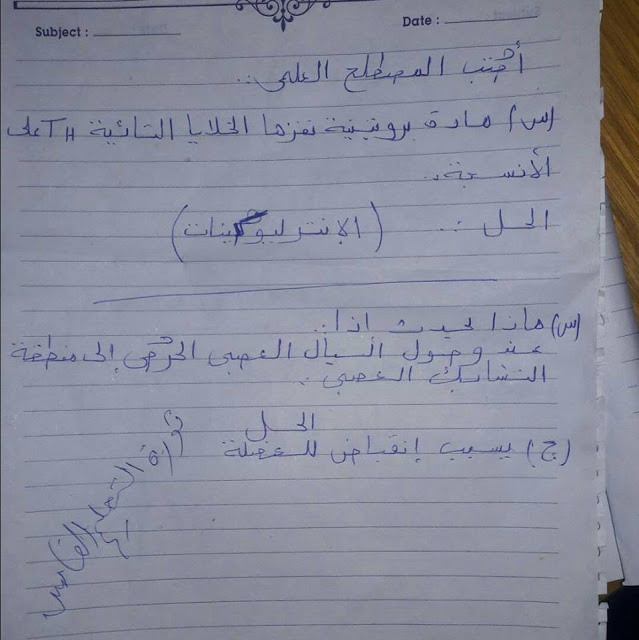 Subject :
Date :
أكتب المصطلح العلمى ..
(س) مادة بروتينية تفرزها الخلايا التائية TH على
الأنسجة ..
الحل :. (الإنترليوكينات)
(س) ماذا يحدث إذا :.
عند وصول السيال العصبى الحركى إلى منطقة
التشابك العصبى ..
الحل
(ج) يسبب إنقباض للعضلة